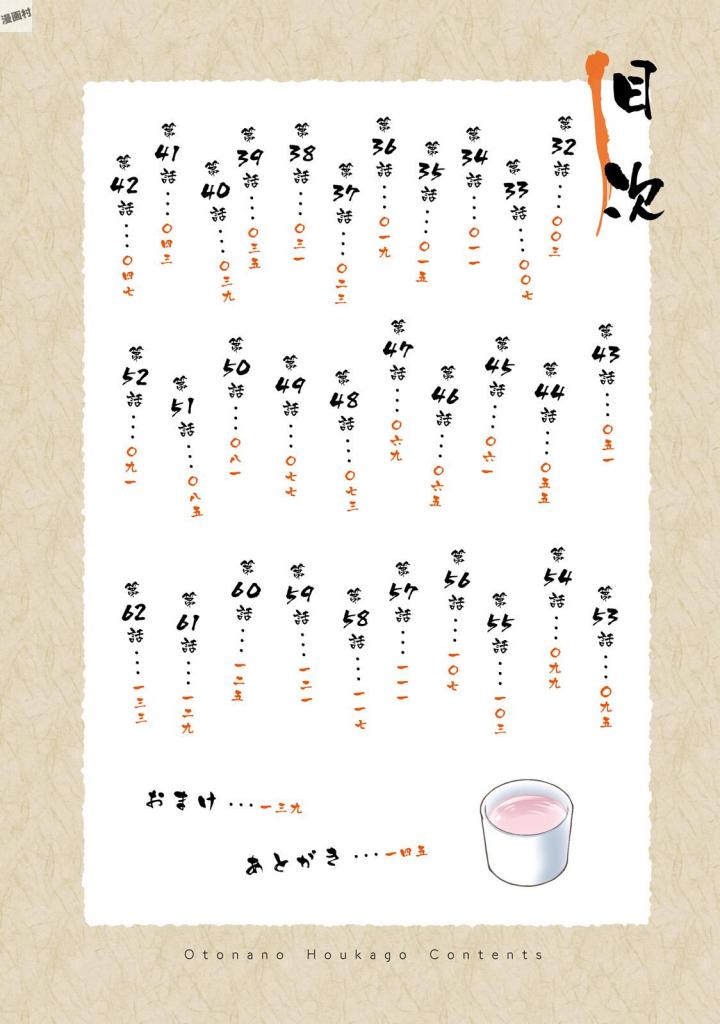 漫画村
目次
第32話・・・・〇〇三
第33話・・・・〇〇七
第34話・・・・〇一一
第35話・・・・〇一五
第36話・・・・〇一九
第37話・・・・〇二三
第38話・・・・〇三一
第39話・・・・〇三五
第40話・・・・〇三九
第41話・・・・〇四三
第42話・・・・〇四七
第43話・・・・〇五一
第44話・・・・〇五五
第45話・・・・〇六一
第46話・・・・〇六五
第47話・・・・〇六九
第48話・・・・〇七三
第49話・・・・〇七七
第50話・・・・〇八一
第51話・・・・〇八五
第52話・・・・〇九一
第53話・・・・〇九五
第54話・・・・〇九九
第55話・・・・一〇三
第56話・・・・一〇七
第57話・・・・一一一
第58話・・・・一一七
第59話・・・・一二一
第60話・・・・一二五
第61話・・・・一二九
第62話・・・・一三三
おまけ・・・一三九
あとがき・・・一四五
Otonano Houkago Contents